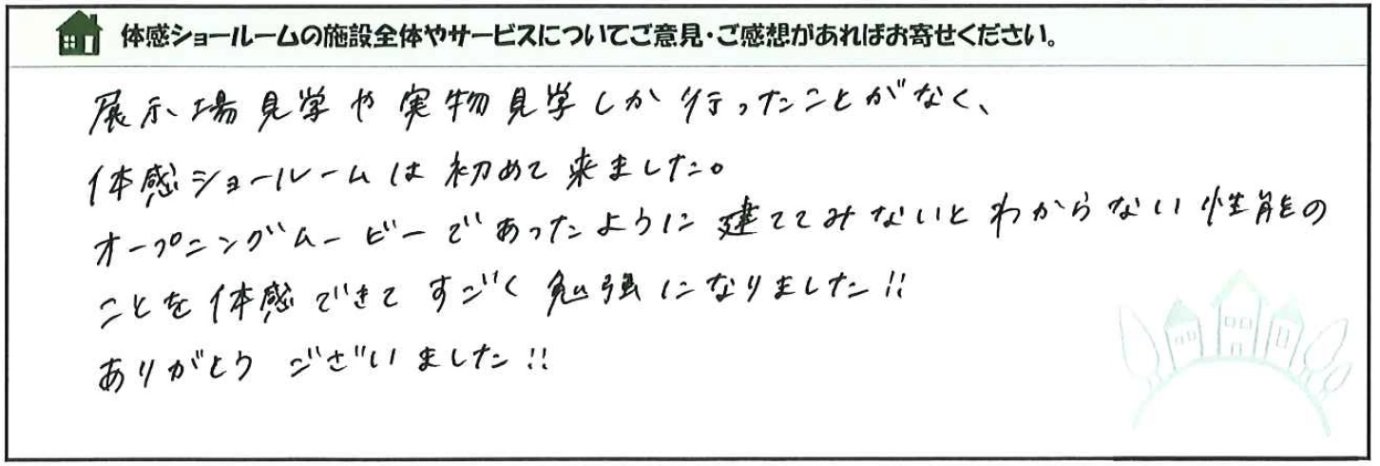 体感ショールームの施設全体やサービスについてご意見・ご感想があればお寄せください。
展示場見学や実物見学しか行ったことがなく、
体感ショールームは初めて来ました。
オープニングムービーであったように建ててみないとわからない性能の
ことを体感できてすごく勉強になりました!!
ありがとうございました!!